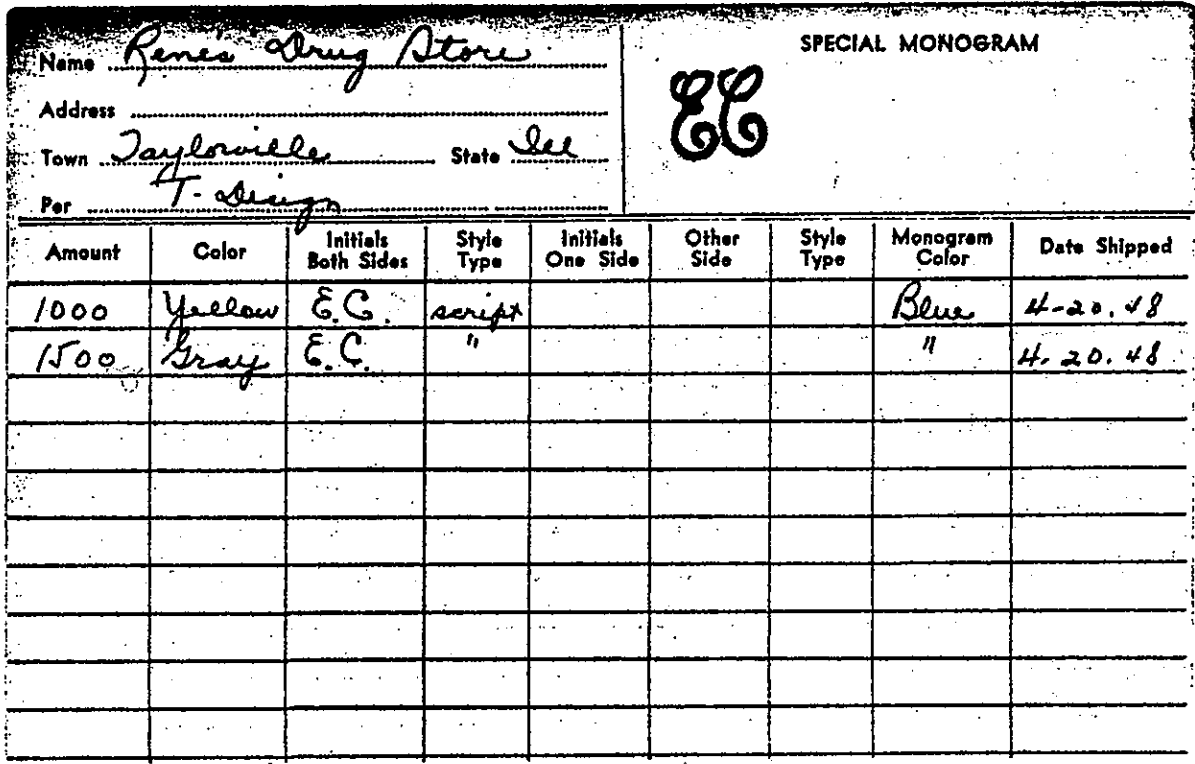 Name Rene's Drug Store
SPECIAL MONOGRAM
EC
Address
Town Taylorville State Ill
Per T- Design
Amount Color Initials Both Sides Style Type Initials One Side Other Side Style Type Monogram Color Date Shipped
1000 Yellow E.C. script Blue 4-20.48
1500 Gray E.C. " " 4.20.48